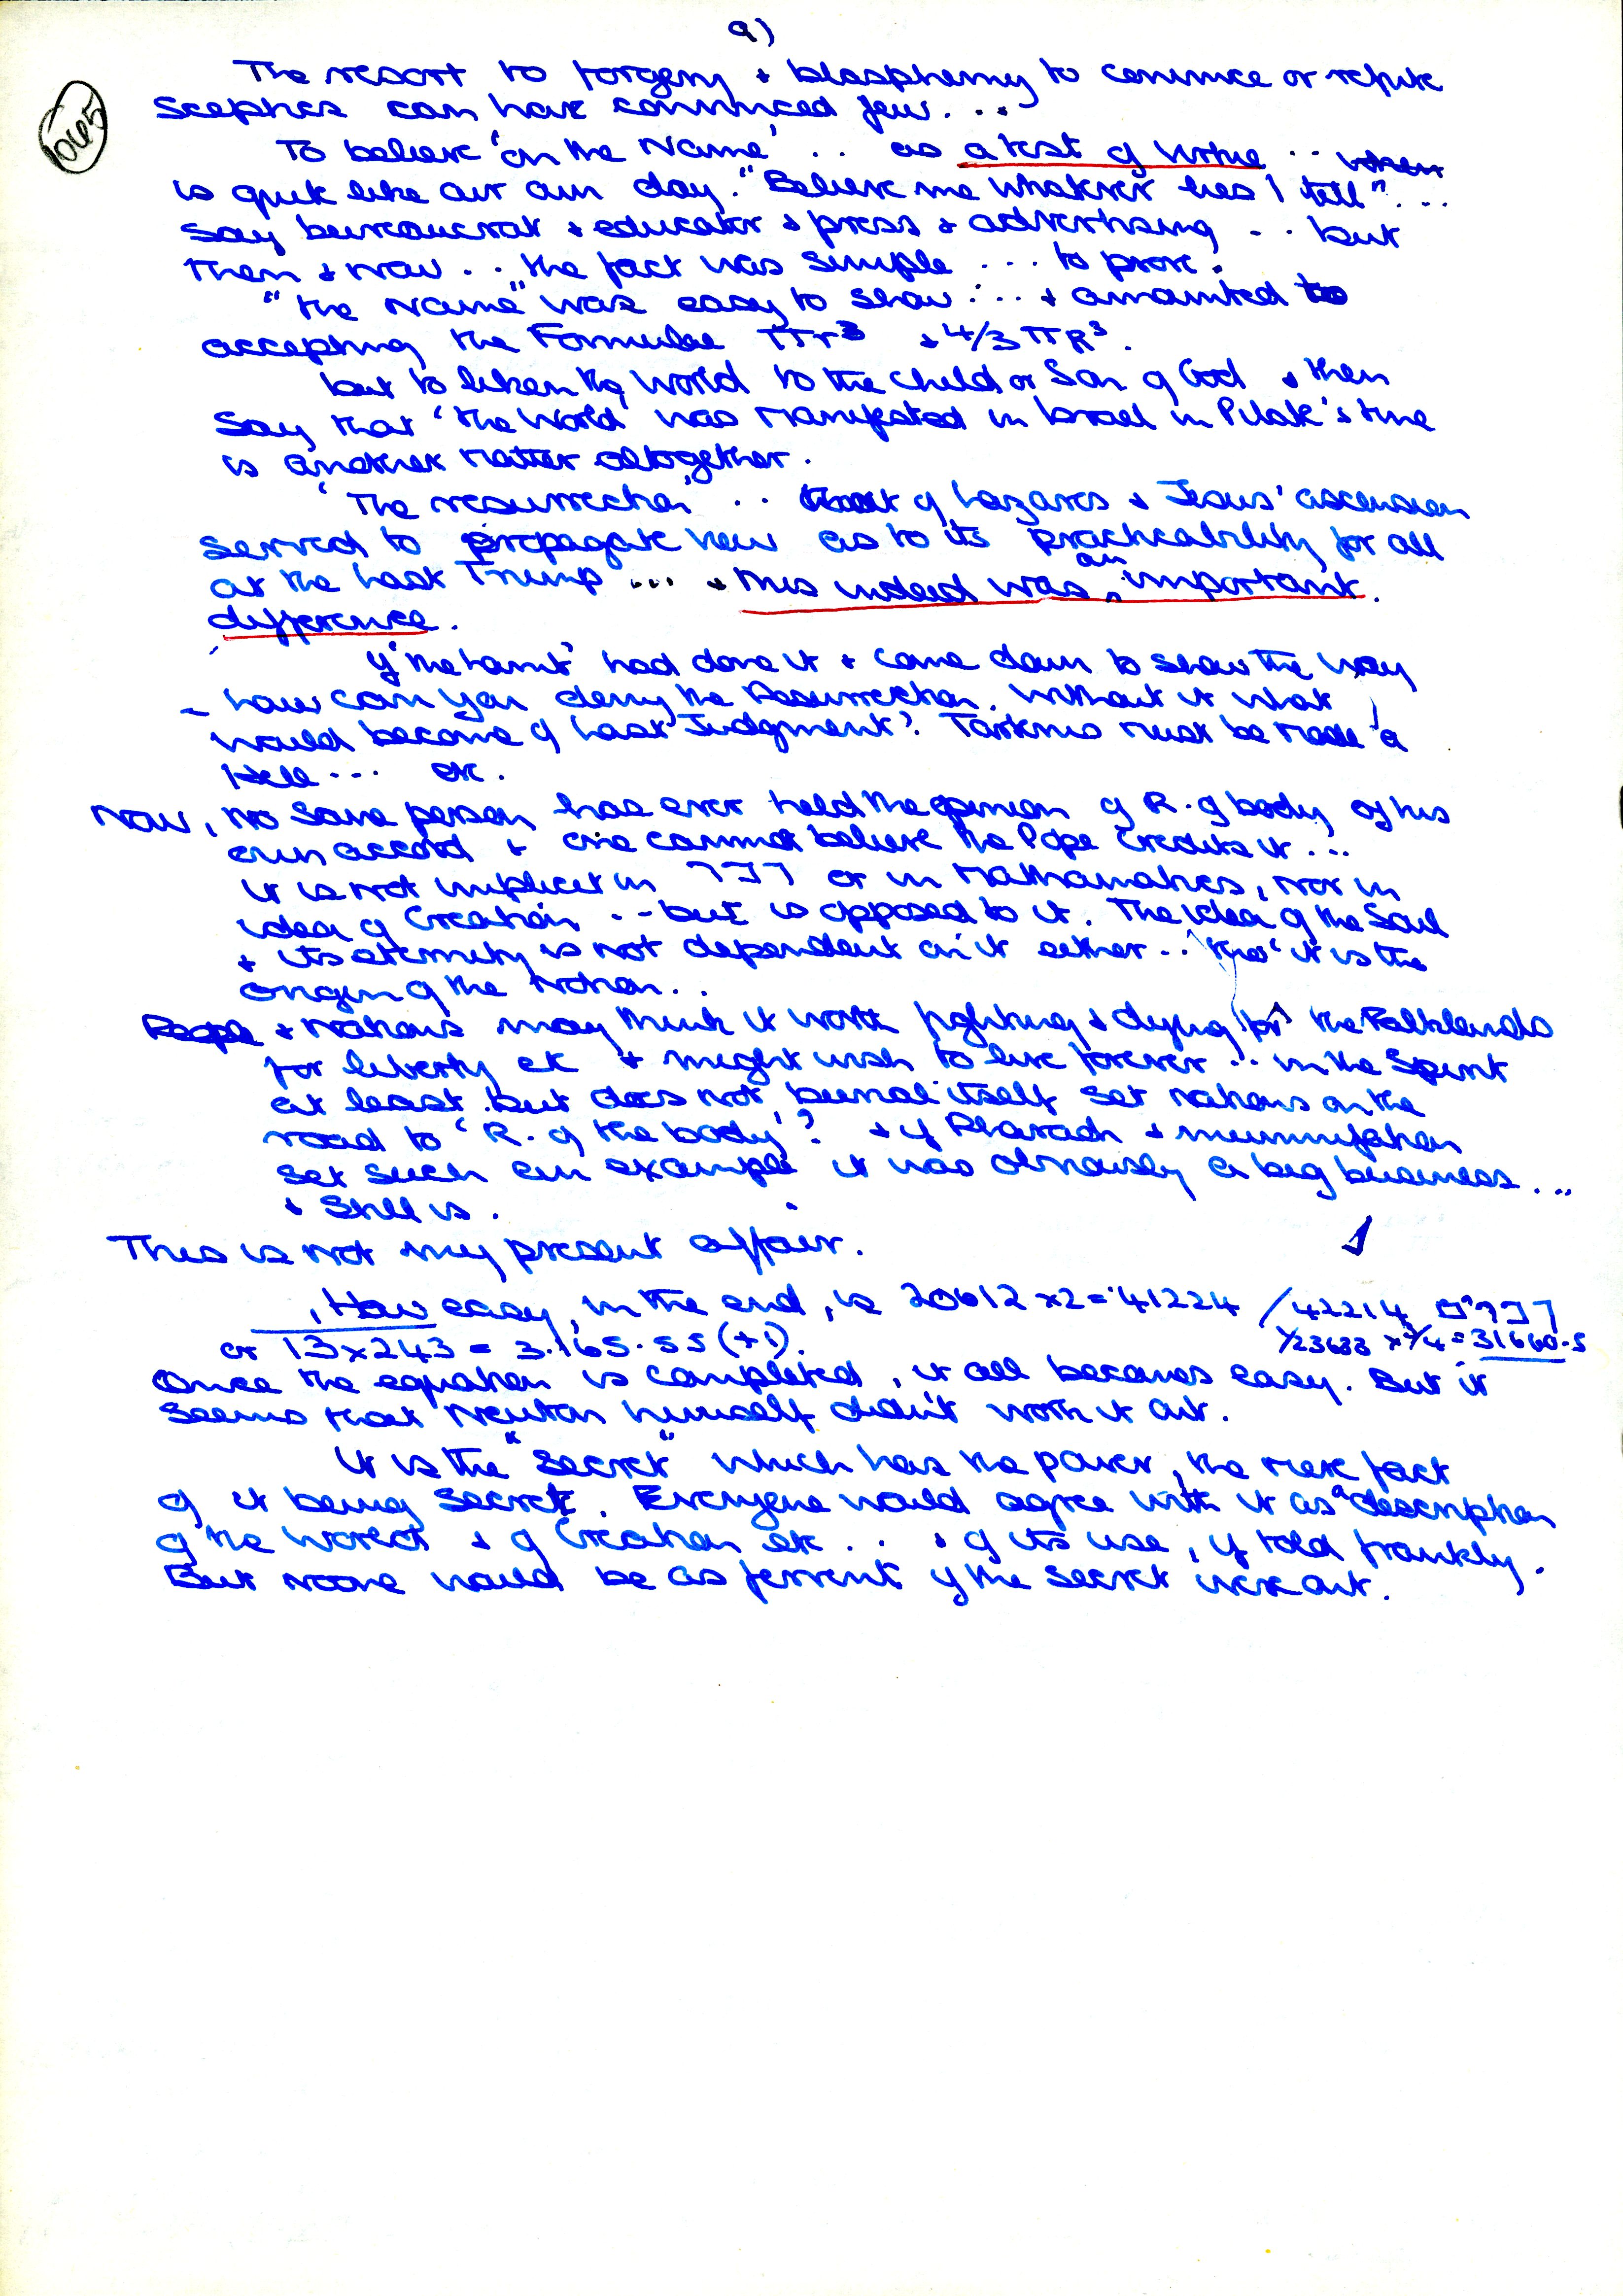 9)
065
The resort to forgery + blasphemy to convince or refute
Sceptics can have convinced few...
To believe 'on the Name' .. as a test of virtue ..
is quite like our own day. "Believe me whatever lies I tell"...
say bureaucrat + educator + press + advertising .. but
then + now .. the fact was simple ... to prove.
"the Name" was easy to show ... + amounted to
accepting the Formulae πr³ + 4/3 πR³.
but to liken the World to the Child or Son of God + then
Say that 'the World' was manifested in Israel in Pilate's time
is another matter altogether.
'The resurrection' .. that of Lazarus + Jesus' ascension
served to propagate view as to its practicability for all
at the Last Trump ... + this indeed was an important
difference.
If 'the Lamb' had done it + come down to show the way
- how can you deny the Resurrection. Without it what
would become of Last Judgment? Tartarus must be made a
Hell ... etc.
Now, no sane person has ever held the opinion of R. of body of his
own accord + one cannot believe the Pope credits it ...
it is not implicit in or in Mathematics, nor in
idea of Creation .. but is opposed to it. The idea of the Soul
+ its eternity is not dependent on it either .. tho' it is the
origin of the notion ..
People + Nations may think it worth fighting + dying for the Falklands
for liberty etc + might wish to live forever .. in the Spirit
at least. but does not burial itself set nations on the
road to 'R. of the body'? + if Pharaoh + mummification
set such an example it was obviously a big business ...
+ still is.
This is not my present affair.
How easy, in the end, is 20612 x 2 = 41224 / 42214
or 13 x 243 = 3.165.55 (+1). 1/23633 x 3/4 = 31660.5
Once the equation is completed, it all becomes easy. But it
seems that Newton himself didn't work it out.
It is the "Secret" which has the power, the mere fact
of it being Secret. Everyone would agree with it as a description
of the World + of Creation etc .. + of its use, if told frankly.
But noone would be as fervent if the secret were out.